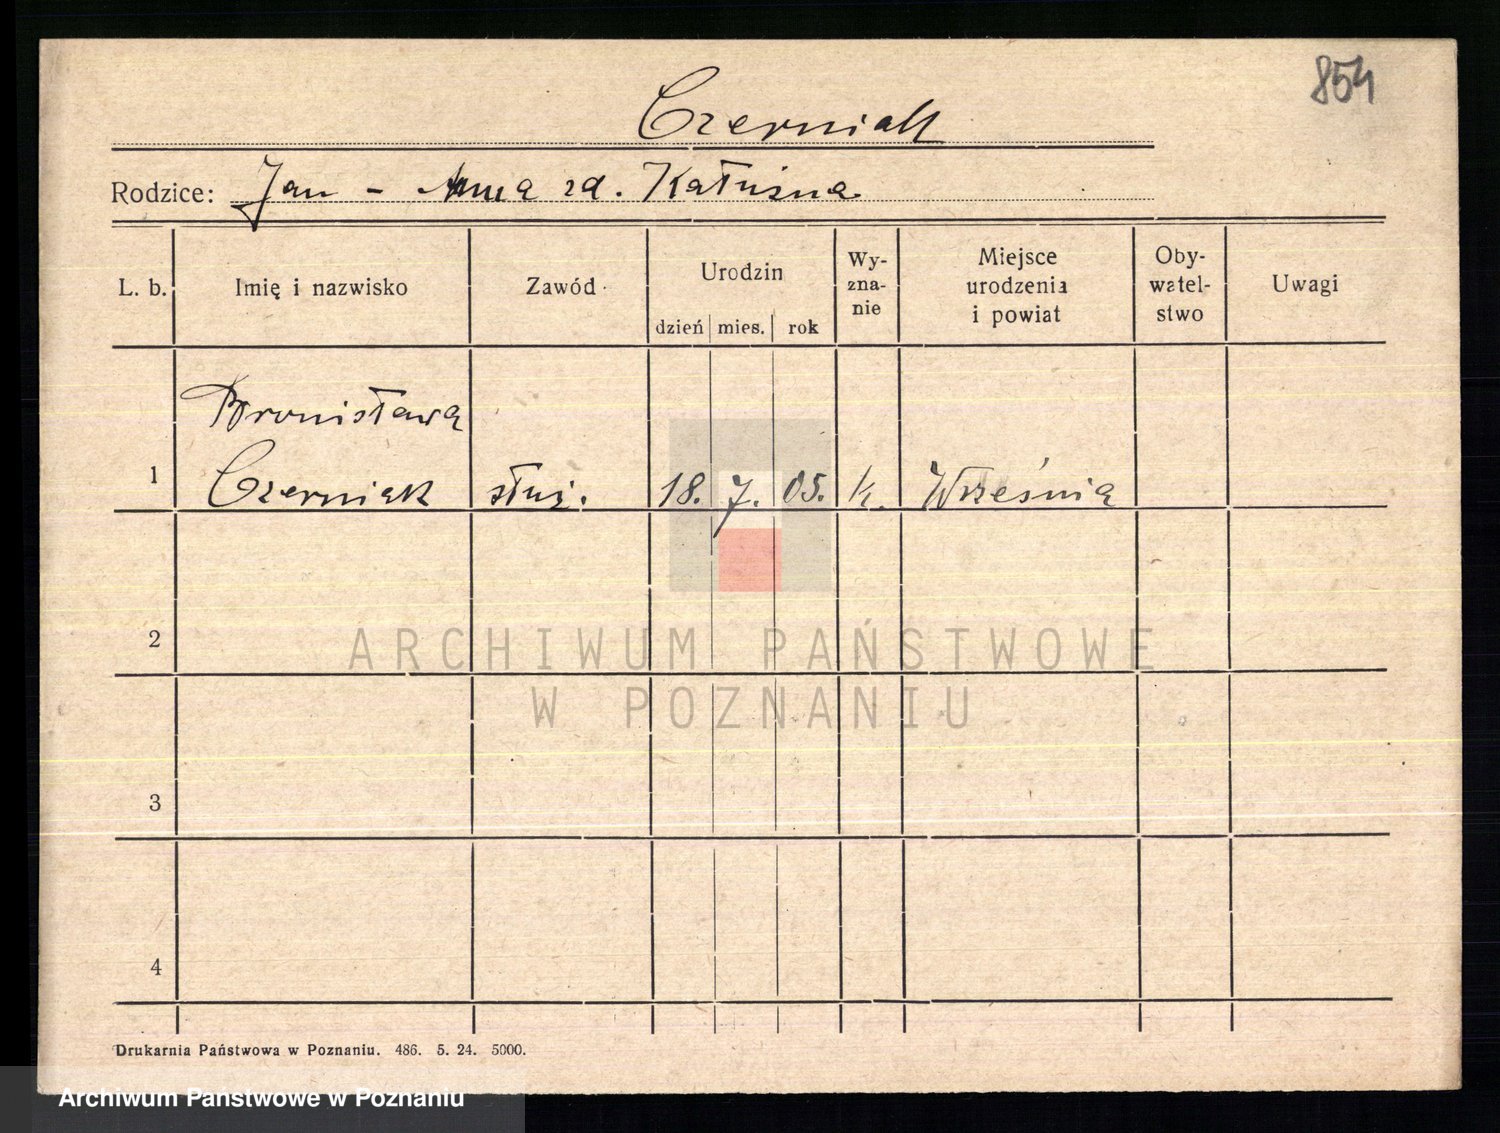 854
Czerniak
Rodzice: Jan - Anna zd. Kałużna
L. b. Imię i nazwisko Zawód Urodzin dzień mies. rok Wy-zna-nie Miejsce urodzenia i powiat Oby-watel-stwo Uwagi
Bronisława
1 Czerniak służ. 18. 7. 05. k. Września
2
ARCHIWUM PAŃSTWOWE
W POZNANIU
3
4
Drukarnia Państwowa w Poznaniu. 486. 5. 24. 5000.
Archiwum Państwowe w Poznaniu